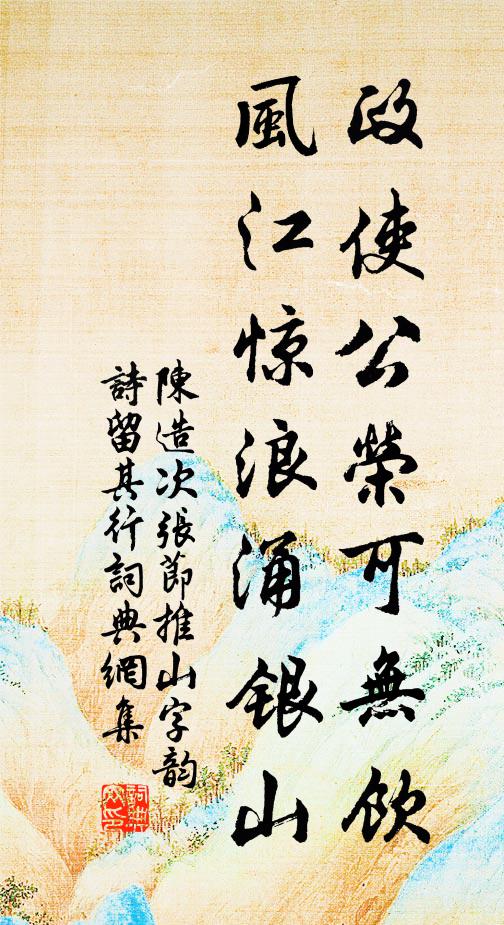 政使公榮可無飲
風江惊浪涌銀山
陳造次張節推山字韵
詩留其行詞典網集